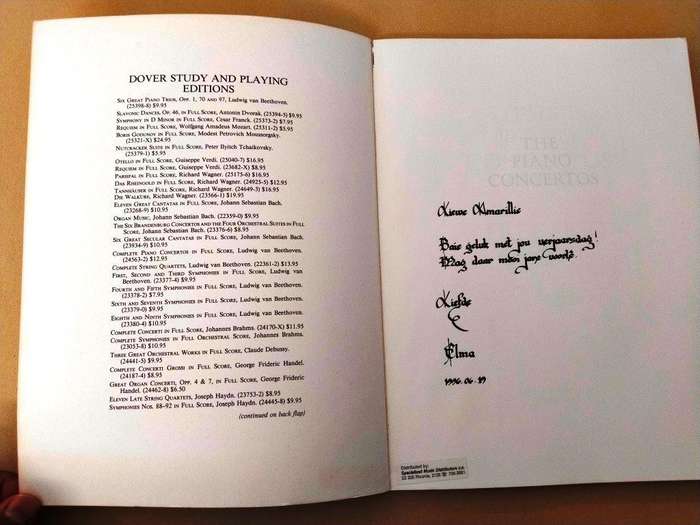 DOVER STUDY AND PLAYING
EDITIONS
SIX GREAT PIANO TRIOS, OPP. 1, 70 AND 97, Ludwig van Beethoven.
(25398-8) $9.95
SLAVONIC DANCES, OP. 46, IN FULL SCORE, Antonin Dvorak. (25394-5) $9.95
SYMPHONY IN D MINOR IN FULL SCORE, Cesar Franck. (25373-2) $7.95
REQUIEM IN FULL SCORE, Wolfgang Amadeus Mozart. (25311-2) $5.95
BORIS GODUNOV IN FULL SCORE, Modest Petrovich Moussorgsky.
(25321-X) $24.95
NUTCRACKER SUITE IN FULL SCORE, Peter Ilyitch Tchaikovsky.
(25379-1) $5.95
OTELLO IN FULL SCORE, Guiseppe Verdi. (25040-7) $16.95
REQUIEM IN FULL SCORE, Guiseppe Verdi. (23682-X) $8.95
PARSIFAL IN FULL SCORE, Richard Wagner. (25175-6) $16.95
DAS RHEINGOLD IN FULL SCORE, Richard Wagner. (24925-5) $12.95
TANNHÄUSER IN FULL SCORE, Richard Wagner. (24649-3) $16.95
DIE WALKÜRE, Richard Wagner. (23566-1) $19.95
ELEVEN GREAT CANTATAS IN FULL SCORE, Johann Sebastian Bach.
(23268-9) $10.95
ORGAN MUSIC, Johann Sebastian Bach. (22359-0) $9.95
THE SIX BRANDENBURG CONCERTOS AND THE FOUR ORCHESTRAL SUITES IN FULL
SCORE, Johann Sebastian Bach. (23376-6) $8.95
SIX GREAT SECULAR CANTATAS IN FULL SCORE, Johann Sebastian Bach.
(23934-9) $10.95
COMPLETE PIANO CONCERTOS IN FULL SCORE, Ludwig van Beethoven.
(24563-2) $12.95
COMPLETE STRING QUARTETS, Ludwig van Beethoven. (22361-2) $13.95
FIRST, SECOND AND THIRD SYMPHONIES IN FULL SCORE, Ludwig van
Beethoven. (23377-4) $9.95
FOURTH AND FIFTH SYMPHONIES IN FULL SCORE, Ludwig van Beethoven.
(23378-2) $7.95
SIXTH AND SEVENTH SYMPHONIES IN FULL SCORE, Ludwig van Beethoven.
(23379-0) $9.95
EIGHTH AND NINTH SYMPHONIES IN FULL SCORE, Ludwig van Beethoven.
(23380-4) $10.95
COMPLETE CONCERTI IN FULL SCORE, Johannes Brahms. (24170-X) $11.95
COMPLETE SYMPHONIES IN FULL ORCHESTRAL SCORE, Johannes Brahms.
(23053-8) $10.95
THREE GREAT ORCHESTRAL WORKS IN FULL SCORE, Claude Debussy.
(24441-5) $9.95
COMPLETE CONCERTI GROSSI IN FULL SCORE, George Frideric Handel.
(24187-4) $8.95
GREAT ORGAN CONCERTI, OPP. 4 & 7, IN FULL SCORE, George Frideric
Handel. (24462-8) $6.50
ELEVEN LATE STRING QUARTETS, Joseph Haydn. (23753-2) $8.95
SYMPHONIES NOS. 88-92 IN FULL SCORE, Joseph Haydn. (24445-8) $9.95
(continued on back flap)
THE
PIANO
CONCERTOS
Liewe Amarillie
Baie geluk met jou verjaarsdag!
Mag daar nog baie
Liefde
Elma
1996.06.19
Distributed by:
Specialised Music Distributors